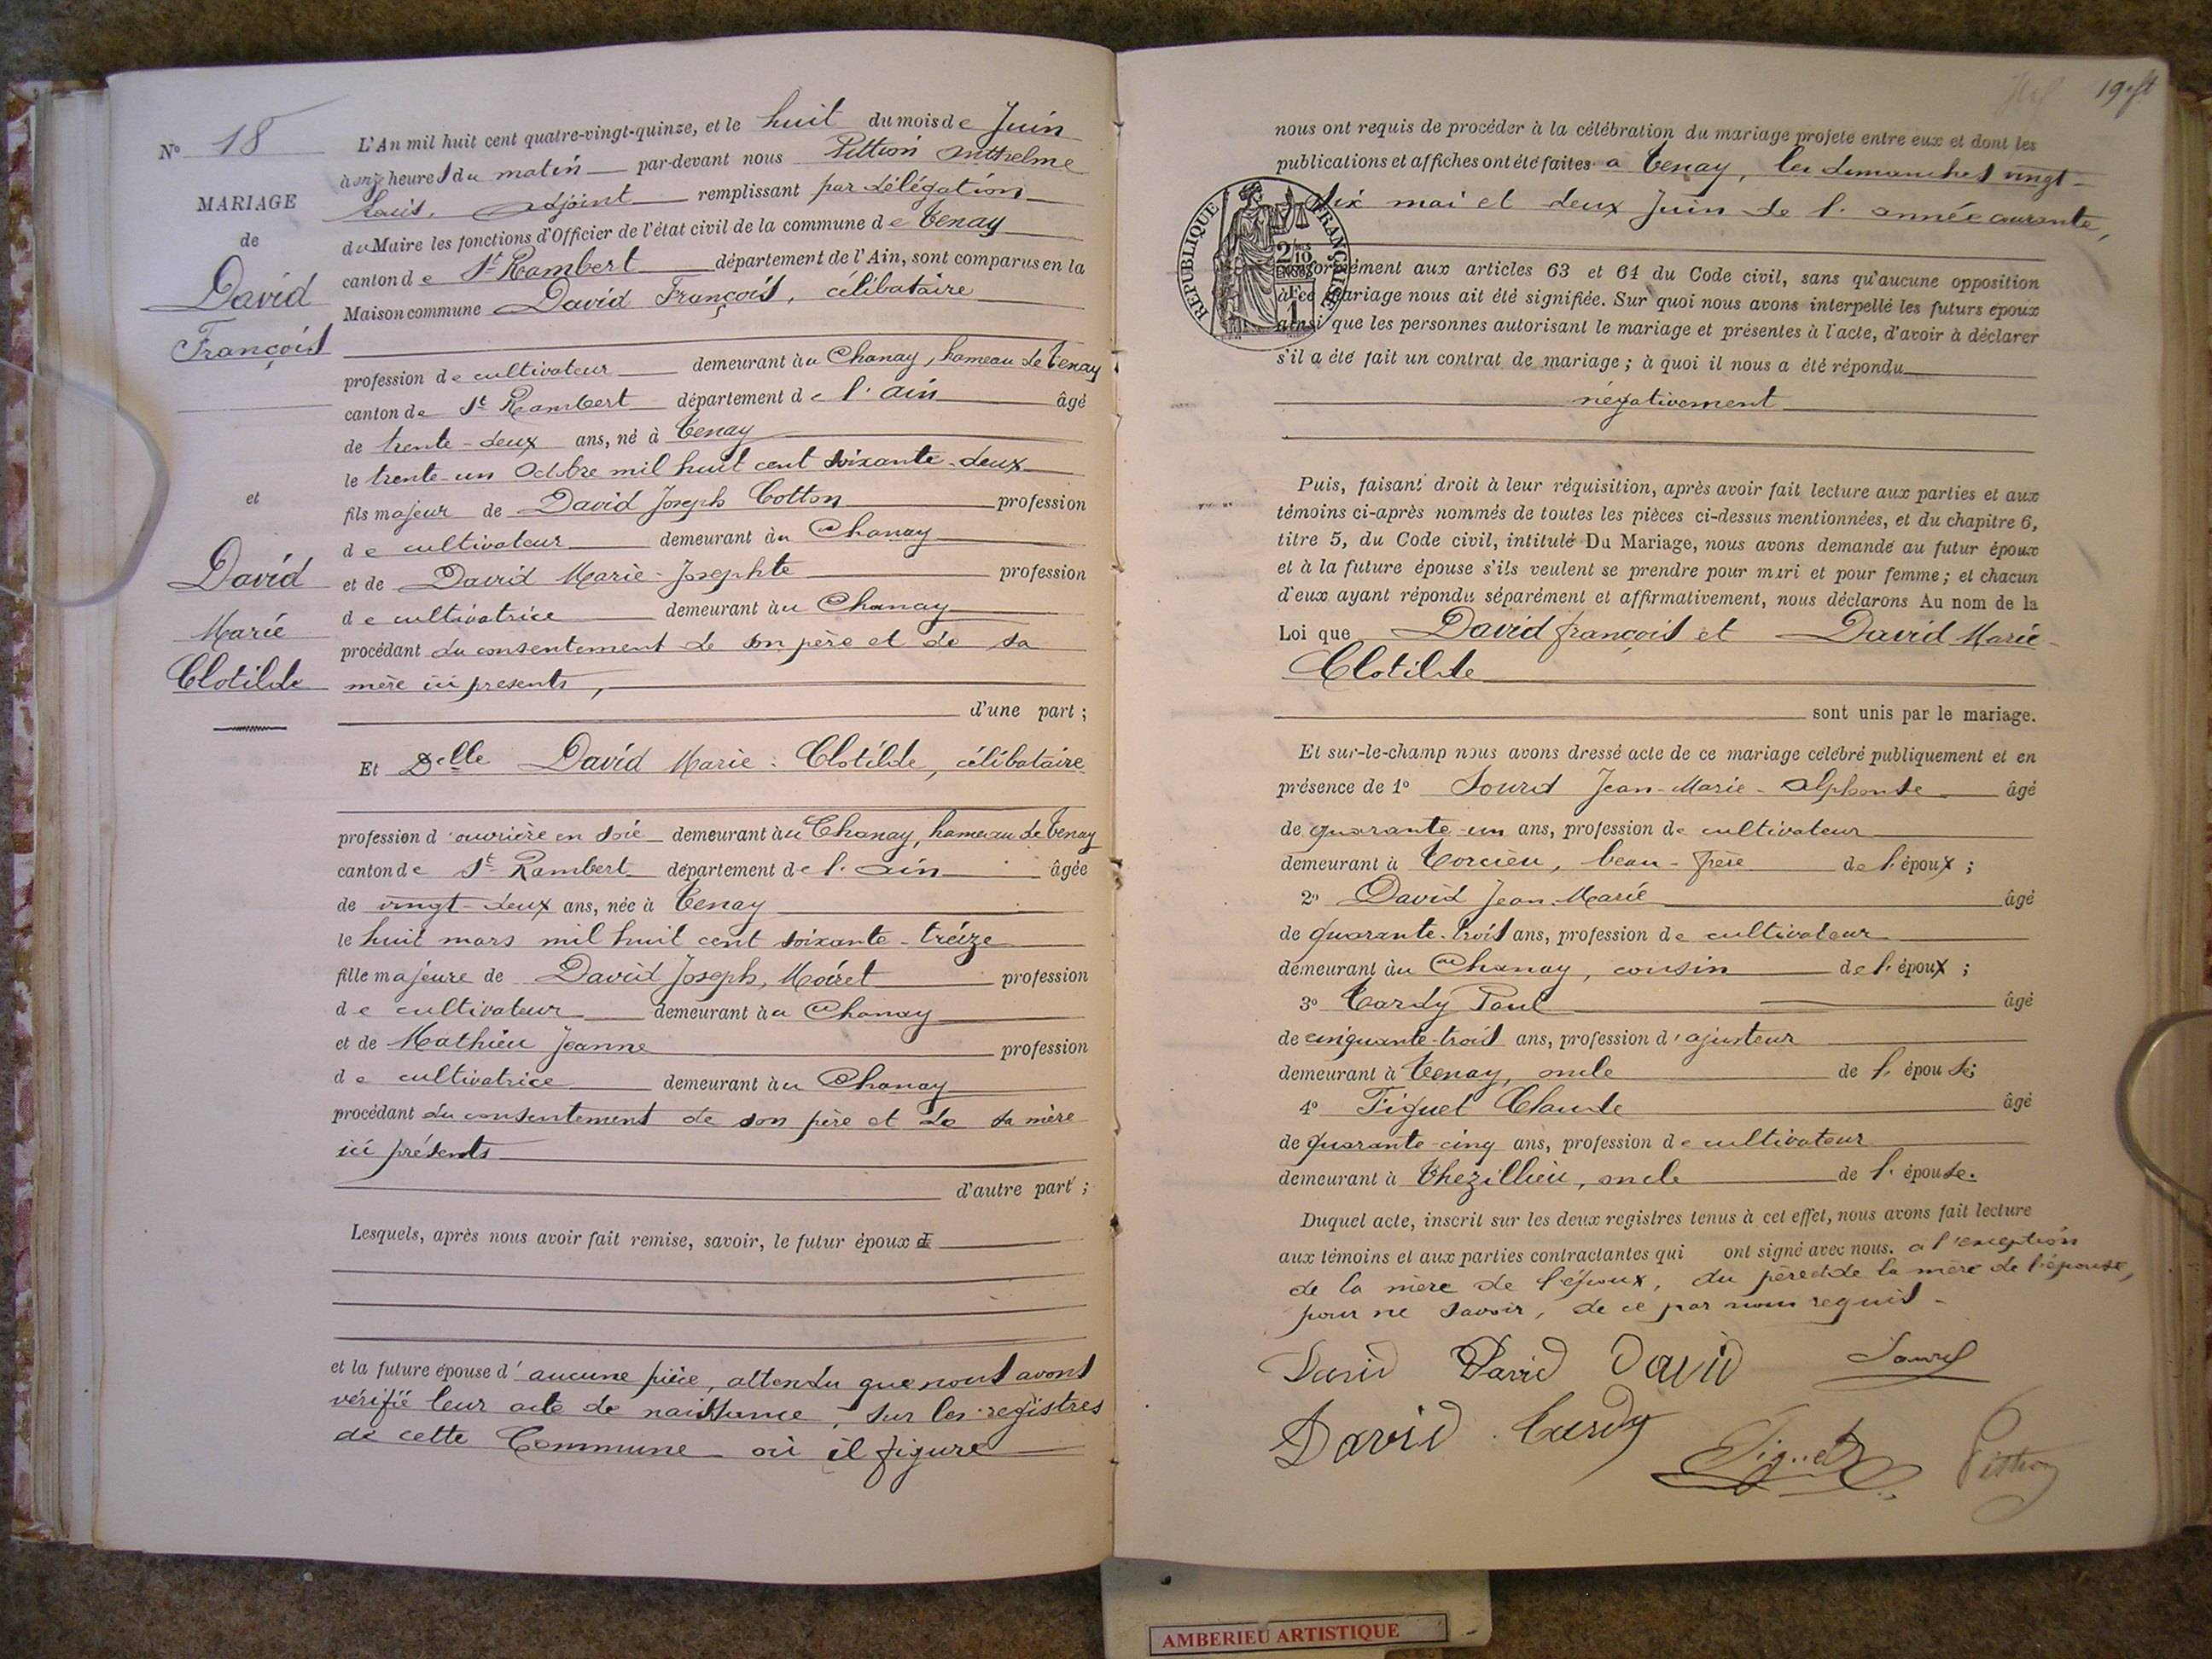 N° 18
MARIAGE
de
David
François
et
David
Marie
Clotilde
L'An mil huit cent quatre-vingt-quinze, et le huit du mois de Juin
à onze heures du matin par-devant nous Pittion Anthelme
Louis, adjoint remplissant par délégation
du Maire les fonctions d'Officier de l'état civil de la commune de Tenay
canton de St Rambert département de l'Ain, sont comparus en la
Maison commune David François, célibataire
profession de cultivateur demeurant au Chanay, hameau de Tenay
canton de St Rambert département de l'ain âgé
de trente-deux ans, né à Tenay
le trente-un Octobre mil huit cent soixante-deux
fils majeur de David Joseph Cotton profession
de cultivateur demeurant au Chanay
et de David Marie-Josephte profession
de cultivatrice demeurant au Chanay
procédant du consentement de son père et de sa
mère ici présents,
d'une part ;
Et Delle David Marie-Clotilde, célibataire
profession d'ouvrière en soie demeurant au Chanay, hameau de Tenay
canton de St Rambert département de l'ain âgée
de vingt-deux ans, née à Tenay
le huit mars mil huit cent soixante-treize
fille majeure de David Joseph, Moiret profession
de cultivateur demeurant au Chanay
et de Mathieu Jeanne profession
de cultivatrice demeurant au Chanay
procédant du consentement de son père et de sa mère
ici présents
d'autre part ;
Lesquels, après nous avoir fait remise, savoir, le futur époux
et la future épouse d'aucune pièce, attendu que nous avons
vérifié leur acte de naissance, sur les registres
de cette Commune où il figure
19
nous ont requis de procéder à la célébration du mariage projeté entre eux et dont les
publications et affiches ont été faites a Tenay, les dimanches vingt-
six mai et deux Juin de l'année courante,
RÉPUBLIQUE FRANÇAISE
conformément aux articles 63 et 64 du Code civil, sans qu'aucune opposition
à ce mariage nous ait été signifiée. Sur quoi nous avons interpellé les futurs époux
ainsi que les personnes autorisant le mariage et présentes à l'acte, d'avoir à déclarer
s'il a été fait un contrat de mariage ; à quoi il nous a été répondu
négativement
Puis, faisant droit à leur réquisition, après avoir fait lecture aux parties et aux
témoins ci-après nommés de toutes les pièces ci-dessus mentionnées, et du chapitre 6,
titre 5, du Code civil, intitulé Du Mariage, nous avons demandé au futur époux
et à la future épouse s'ils veulent se prendre pour mari et pour femme ; et chacun
d'eux ayant répondu séparément et affirmativement, nous déclarons Au nom de la
Loi que David françois et David Marie-
Clotilde
sont unis par le mariage.
Et sur-le-champ nous avons dressé acte de ce mariage célébré publiquement et en
présence de 1° Sourd Jean-Marie-Alphonse âgé
de quarante-un ans, profession de cultivateur
demeurant à Torcieu, beau-frère de l'époux ;
2° David Jean-Marie âgé
de quarante-trois ans, profession de cultivateur
demeurant au Chanay, cousin de l'époux ;
3° Tardy Paul âgé
de cinquante-trois ans, profession d'ajusteur
demeurant à Tenay, oncle de l'épouse;
4° Figuet Claude âgé
de quarante-cinq ans, profession de cultivateur
demeurant à Thezillieu, oncle de l'épouse.
Duquel acte, inscrit sur les deux registres tenus à cet effet, nous avons fait lecture
aux témoins et aux parties contractantes qui ont signé avec nous. a l'exception
de la mère de l'époux, du père et de la mère de l'épouse,
pour ne savoir, de ce par nous requis-
David David David Sourd
David Tardy Figuet Pittion
AMBERIEU ARTISTIQUE